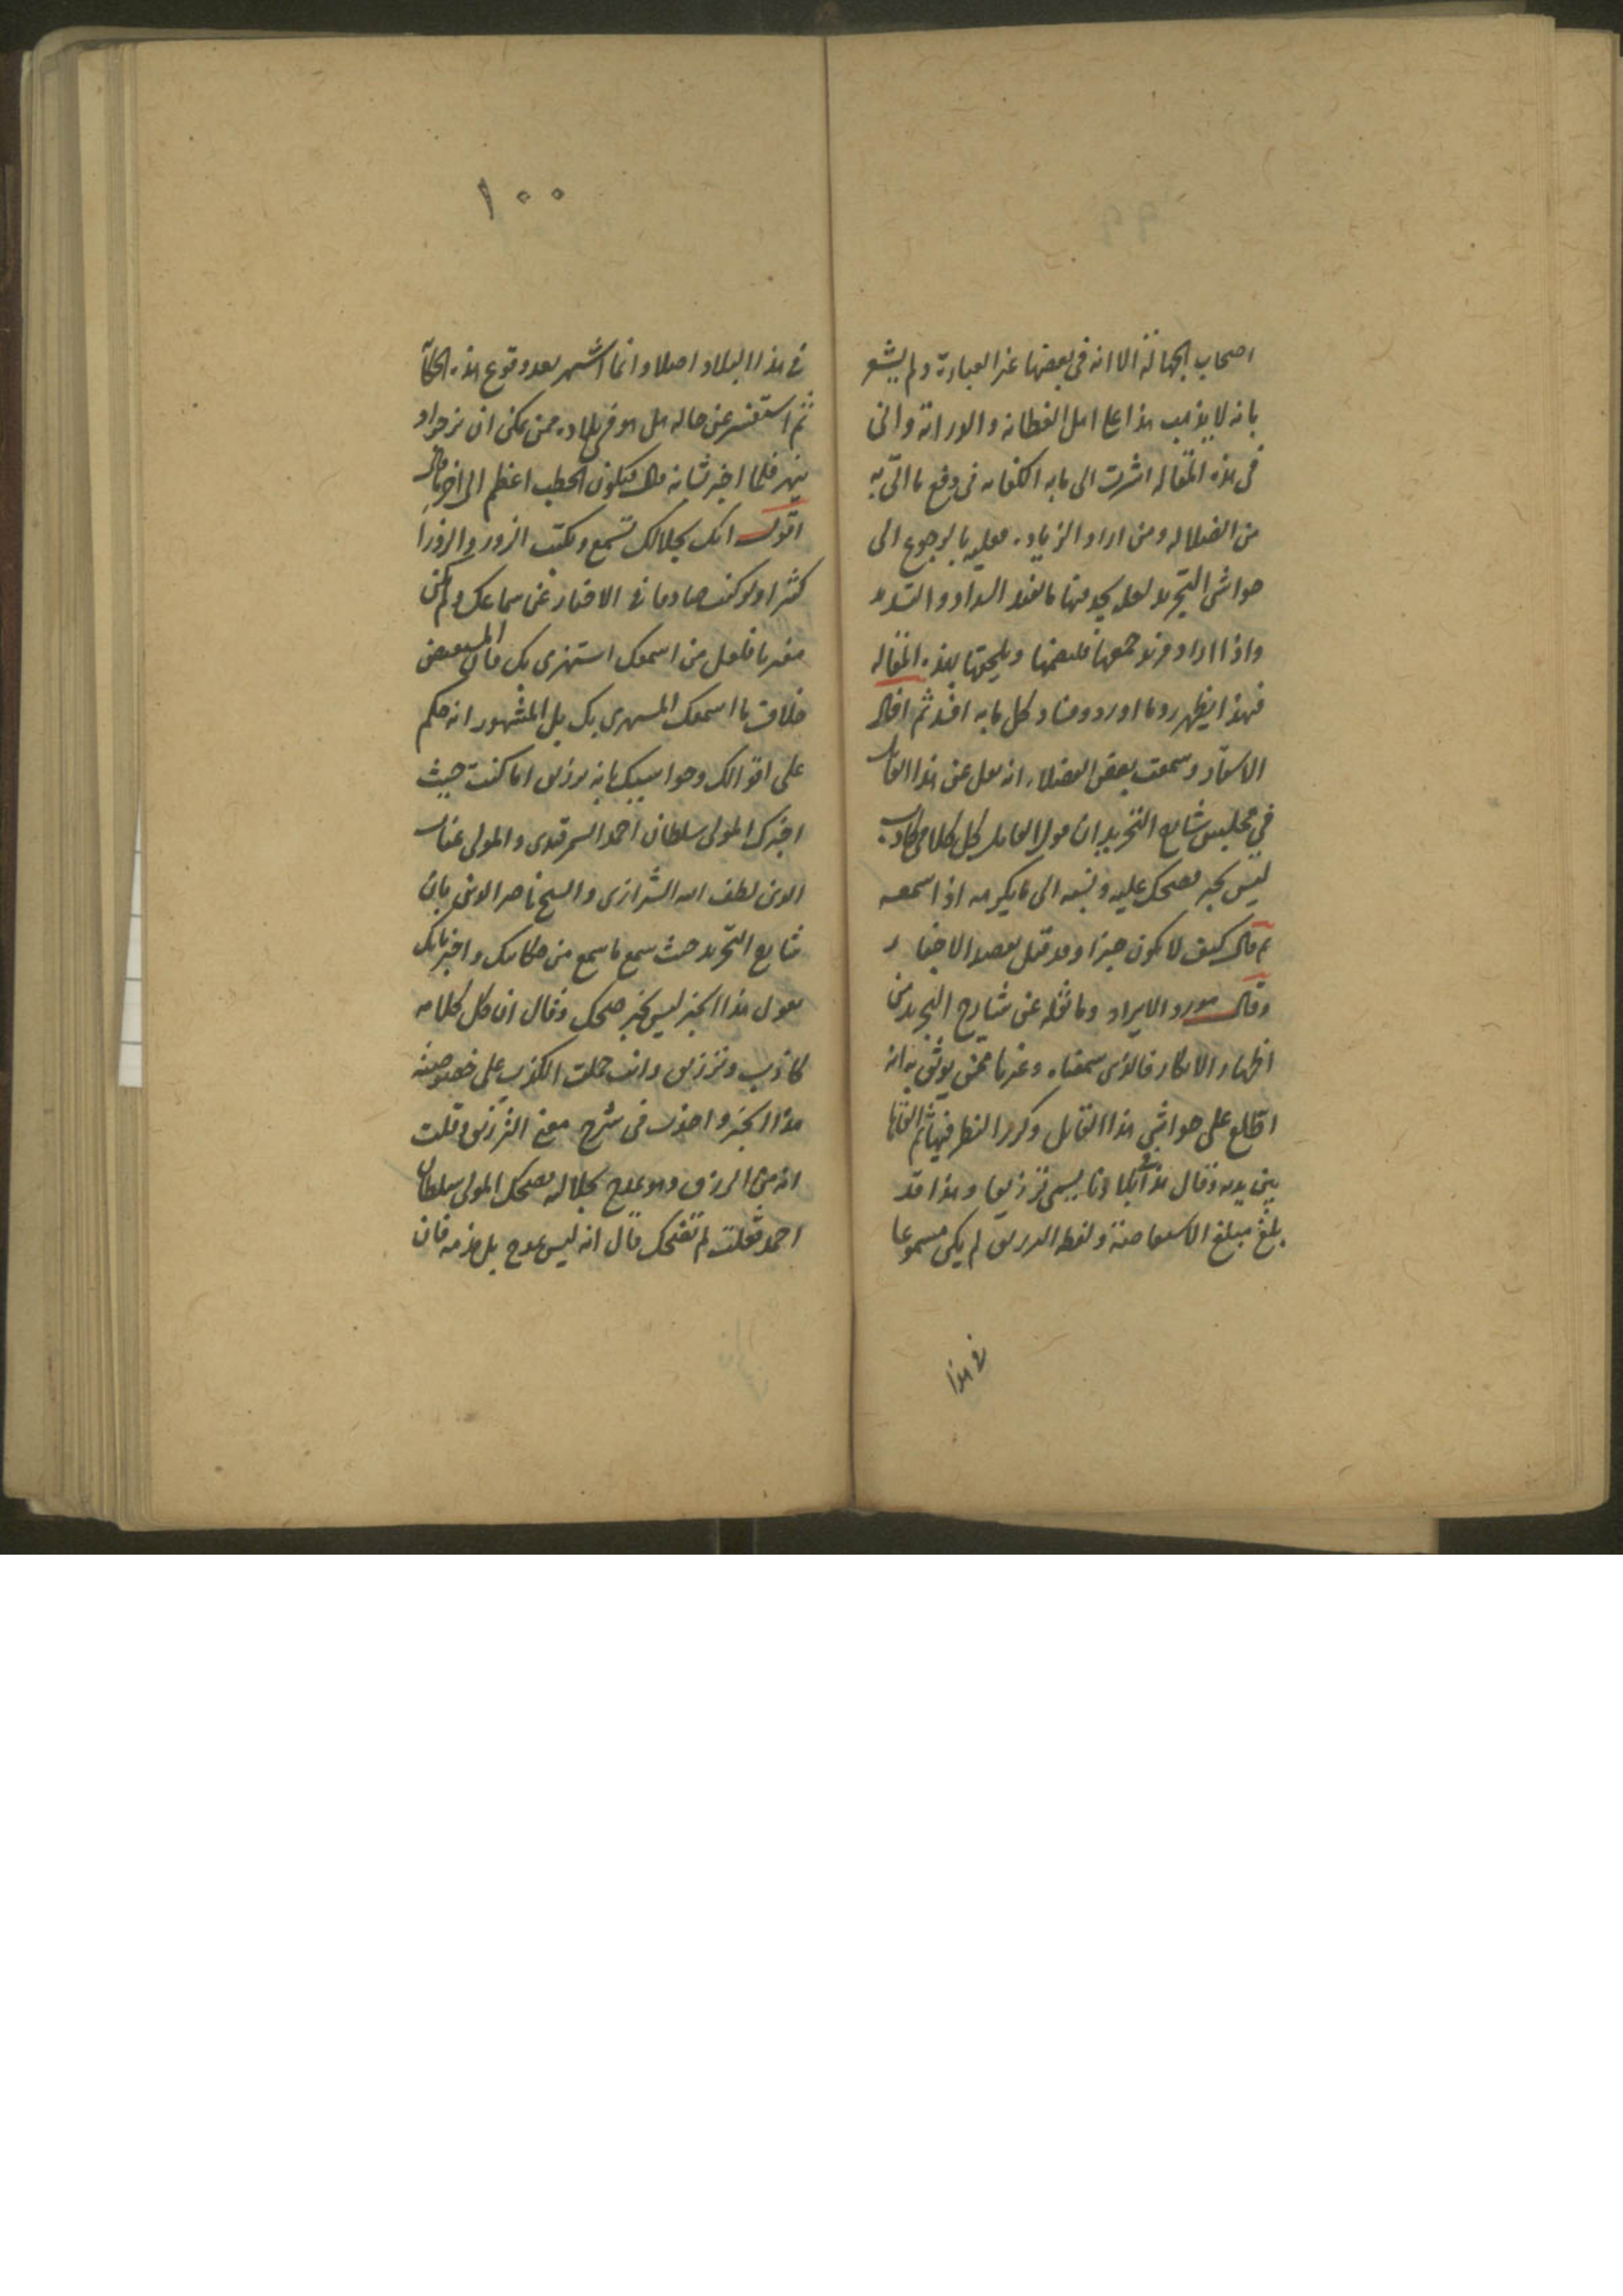 ٩٩
اصحاب الجهالة الا انه فى بعضها غير العبارة ولم يشعر
بانه لا يذهب هذا على اهل الفطانه و الدراية وانى
فى هذه المقاله اشرت الى ما به الكفايه فى دفع ما اتى به
من الضلاله ومن اراد الزياده فعليه بالرجوع الى
حواشى التجريد لعله يجد منها ما السداد و
واذا اراد ويلحقها بهذه المقاله
فبهذا يظهر رد ما اورد وفساد كل ما به ثم افاد
الاستاد وسمعت بعض الفضلاء انه نقل عن هذا القائل
فى مجلس شارح التجريد ان قول القايل كل كلامى كاذب
ليس بخبر فضحك عليه ونسبه الى ما يكرهه اذا سمعه
ثم قال كيف لا يكون خبرا وقد الاخبار
وقال مورد الايراد وما نقله عن شارح التجريد من
اظهار الانكار فالذى سمعناه وغيرنا ممن يوثق به انه
اطلع على حواشى هذا القايل وكرر النظر فيها ثم القاها
بين يديه وقال هذا فى بلادنا يسمى تزريقا وهذا قد
بلغ مبلغ الاستفاضة ولفظ التزريق لم يكن مسموعا
فى هذا
١٠٠
فى هذا البلاد اصلا وانما اشتهر بعد وقوع هذه الحكاية
ثم استفسر عن حاله هل هو فى بلاده ممن يمكن ان
فلما اخبر شانه قال فيكون الخطب اعظم الى اخر ما قال
اقول انك بجلالك تسمع وتكتب الزور والزورا
كثيرا ولو كنت صادقا فى الاخبار عن سماعك ولم تكن
مفتريا فلعل من اسمعك استهزى بك فان
خلاف ما اسمعك المستهزى بك بل المشهور انه حكم
على اقوالك وحواشيك بانه تزريق اما كنت حيث
اخبرك المولى سلطان احمد السمرقندى والمولى غياث
الدين لطف الله الشيرازى والشيخ ناصر الدين بان
شارح التجريد حيث سمع ما سمع من حكايتك واخبر بانك
تقول هذا الخبر ليس بخبر ضحك وقال ان كل كلامه
كاذب وتزريق وانت حملت الكذب على خصوصية
هذا الخبر واخذت فى شرح معنى التزريق وقلت
انه من الرزق وهو مدح بجلاله فضحك المولى سلطان
احمد فقلت لم تضحك قال انه ليس بمدح بل مذمه فان